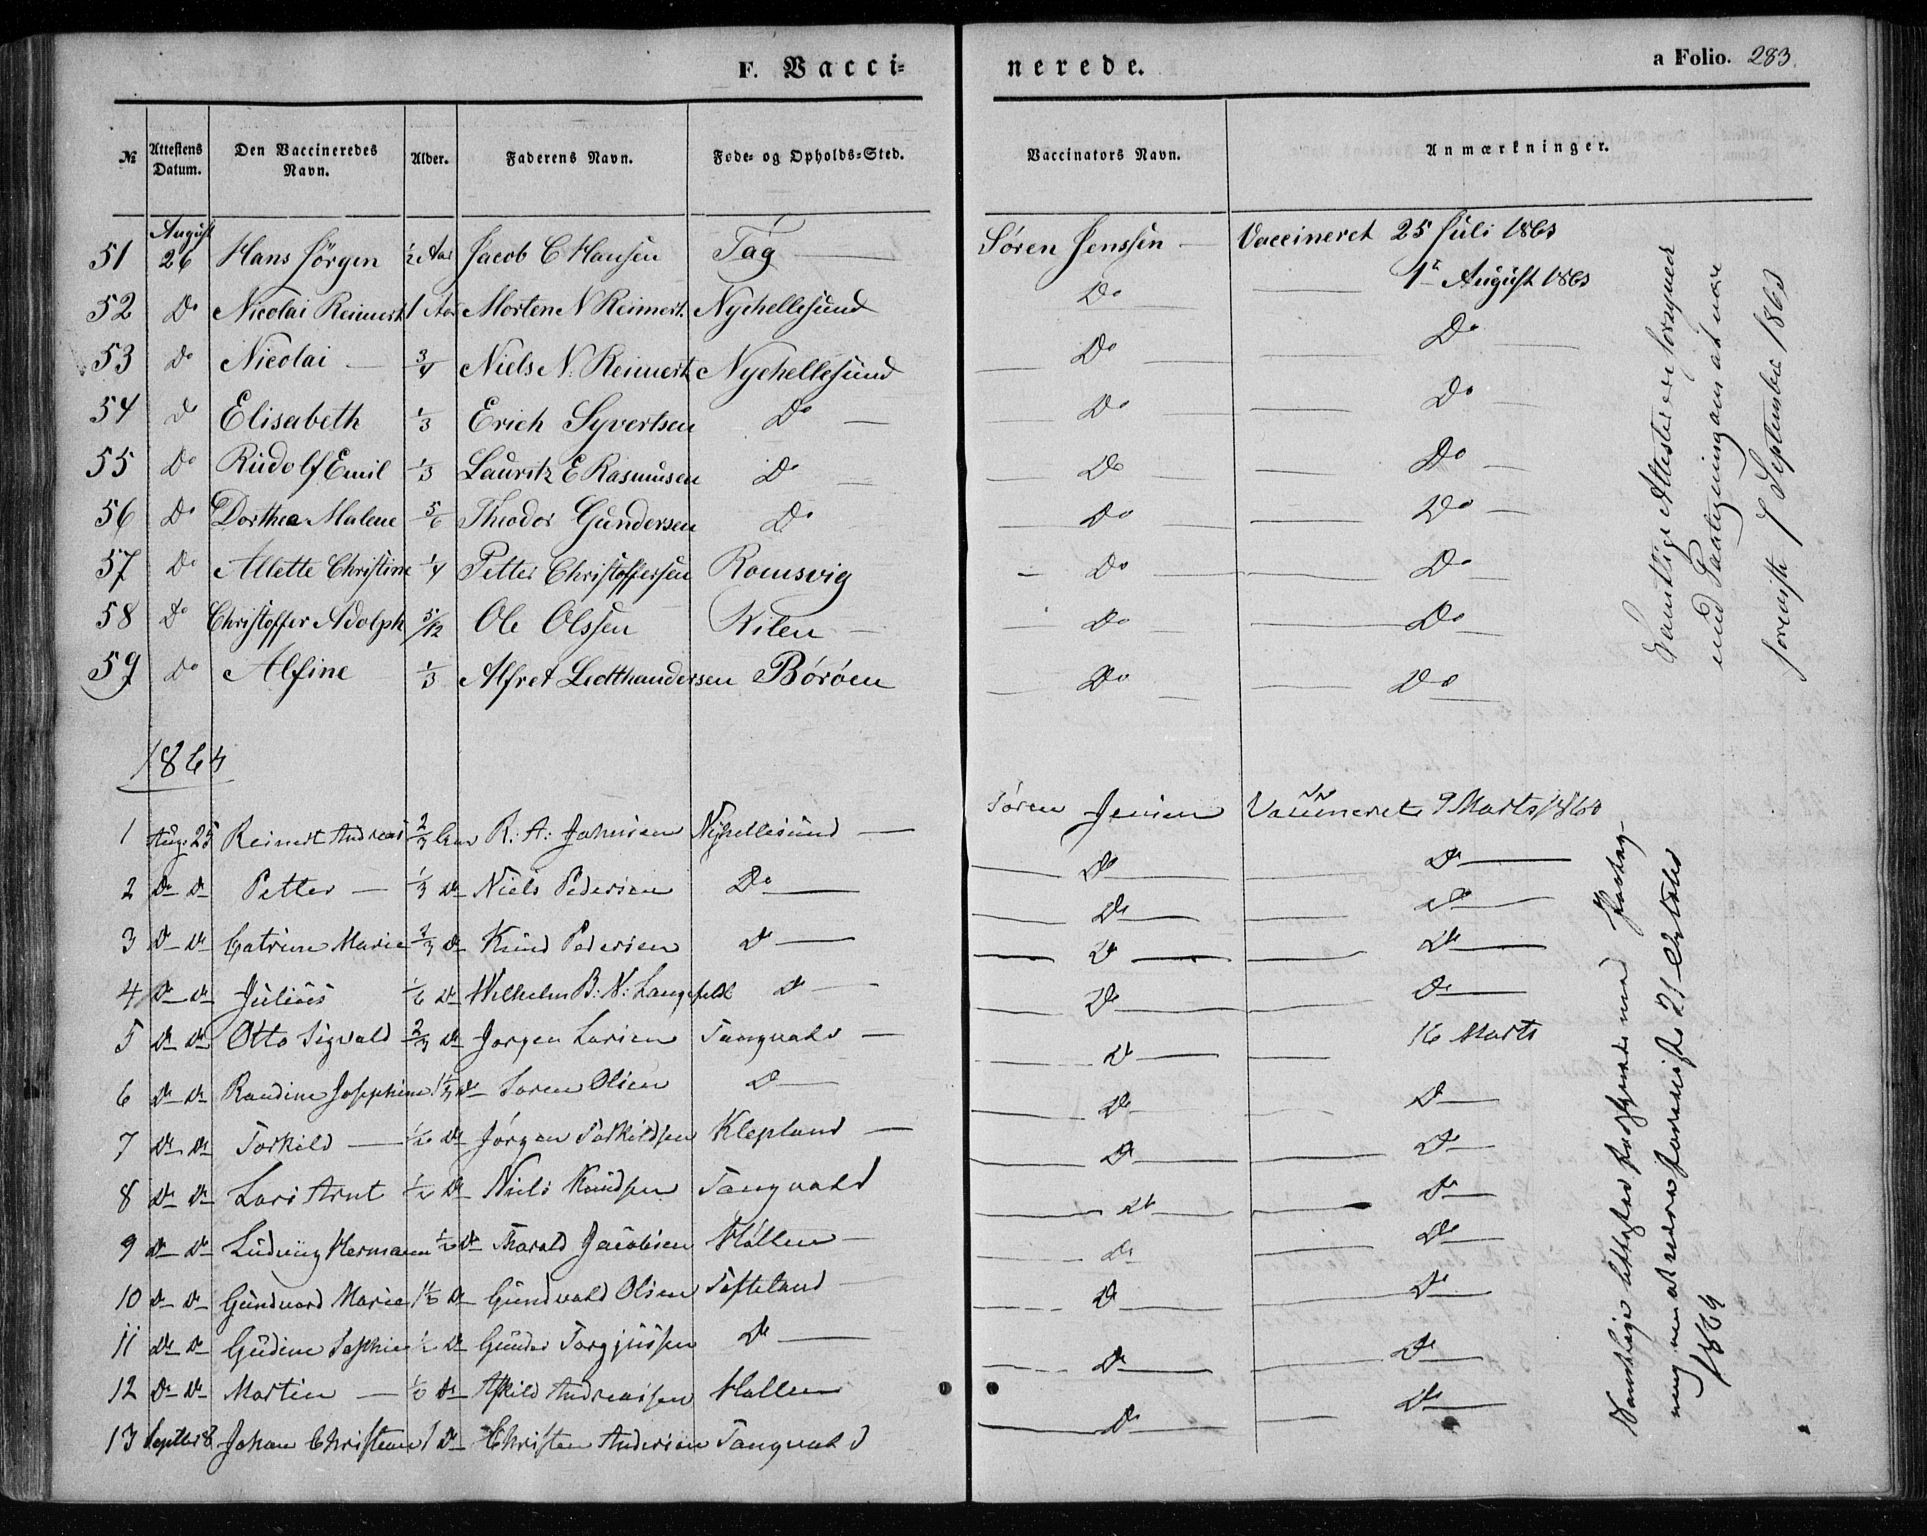 F. Vacci-
nerede.
a Folio. 283.
№ Attestens Datum. Den Vaccineredes Navn. Alder. Faderens Navn. Føde- og Opholds-Sted. Vaccinators Navn. Anmærkninger.
August
51 26 Hans Jörgen ½ Aar Jacob C Hansen Tag — Sóren Jenssen — Vaccineret 25 Juli 1863
52 Do Nicolai Reimert 1 Aar Morten N Reimert. Nychellesund Do — 1te August 1863
53 Do Nicolai — 3/4 Niels N. Reimert Nychellesund Do — Do
54 Do Elisabeth 1/3 Erich Syvertsen Do — Do — Do
55 Do Rudolf Emil 1/3 Lauritz E Rasmusen Do — Do — Do
56 Do Dorthea Malene 5/6 Theodor Gundersen Do Do — Do
57 Do Allette Christine 1/4 Petter Christoffersen Romsvig Do — Do
58 Do Christoffer Adolph 5/12 Ole Olssen Kilen — Do — Do
59 Do Alfine 1/3 Alfret Ledthandersen Böröen Do — Do
Samtlige Attester ere forsynede
med Paategning om at være
foreviist 7 September 1863
1864
1 Aug. 25 Reinert Andreas 2/3 R: A: Jahnsen Nyhellesund — Sören Jensen Vaccineret 9 Marts 1864
2 Do Do Petter — 1/3 Do Niels Pedersen Do — Do — Do
3 Do Do Catrine Marie 2/3 Do Knud Pedersen Do — Do — Do
4 Do Do Julius 1/6 Do Wilhelm B: N: Langfeldt Do — Do — Do
5 Do Do Otto Sigvald 2/3 Do Jørgen Larsen Tangvald — Do — Do
6 Do Do Randine Josephine 1 1/3 Do Soren Olsen Do — Do — 16 Marts
7 Do Do Torkild — ½ Do Jörgen Torkildsen Klepland — Do — Do
8 Do Do Lars Arnt ½ Do Niels Knudsen Tangvald Do — Do
9 Do Do Ludvig Hermann ½ Do Tharald Jacobsen Höllen — Do — Do
10 Do Do Gundvord Marie 1½ Do Gundvald Olsen Tofteland Do — Do
11 Do Do Gudine Sophie ½ Do Gunder Torgjussen Do — Do — Do
12 Do Do Martin — Do Askild Andreassen Hollen Do — Do
13 Septbr 8 Johan Christian 1 Do Christen Andersen Tangvald Do — Do
Samtlige Attester forsynede med Paateg-
ning om at være foreviste 21 October
1864